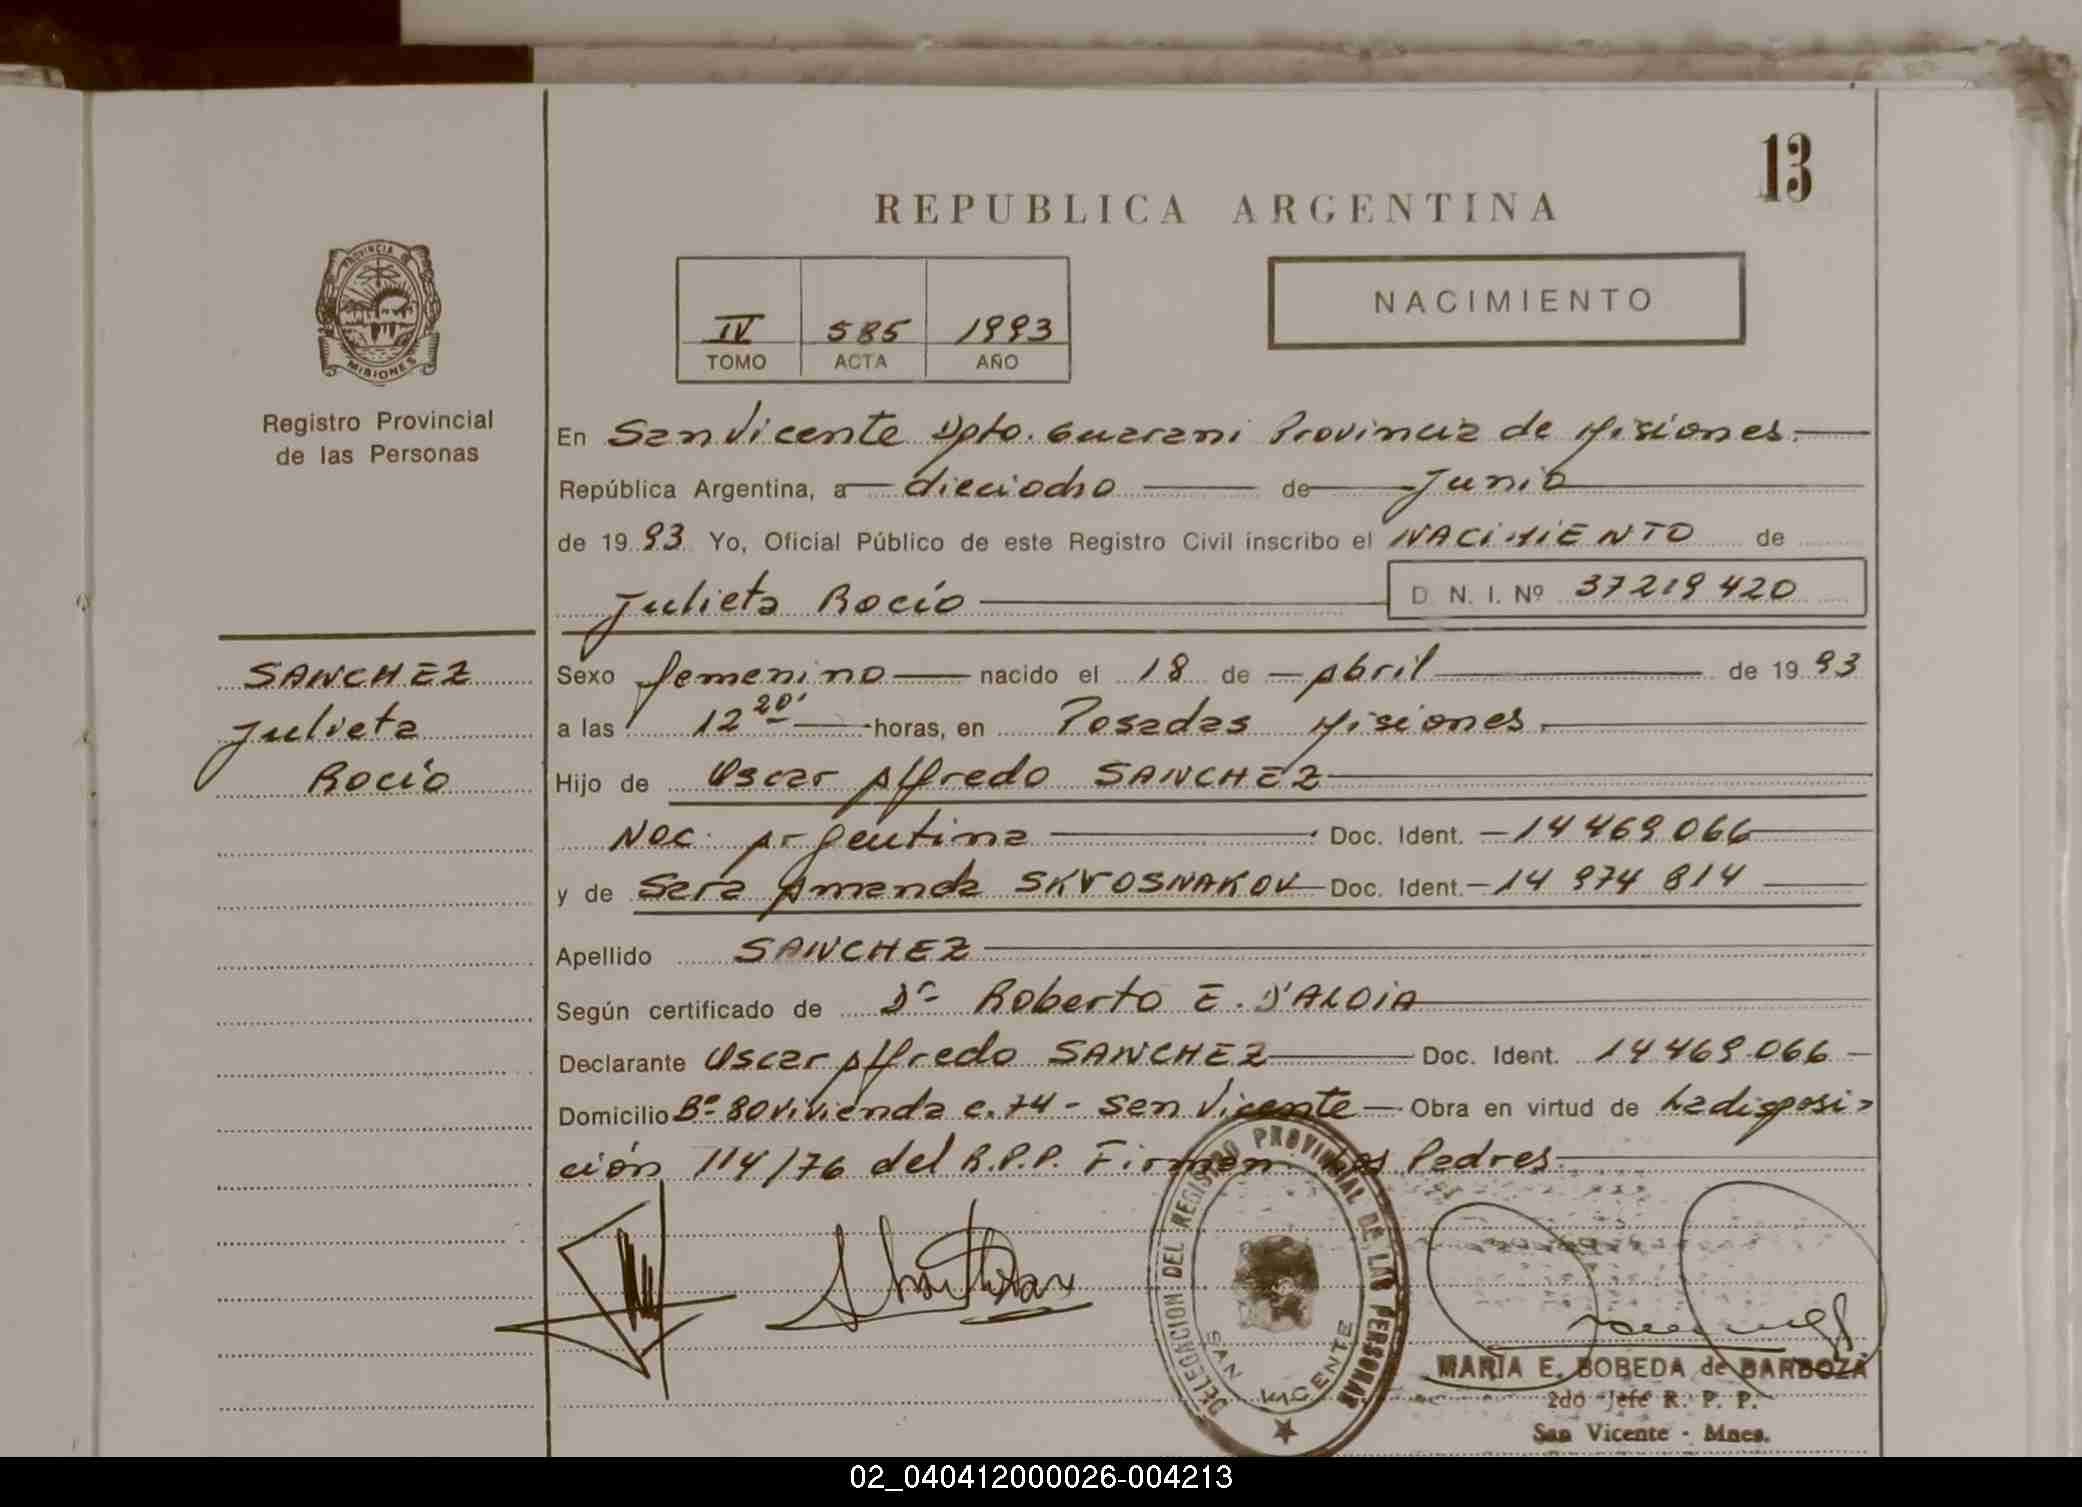 13
REPUBLICA ARGENTINA
PROVINCIA D MISIONES
IV 585 1993
TOMO ACTA AÑO
NACIMIENTO
Registro Provincial
de las Personas
En San Vicente Dpto. Guarani Provincia de Misiones.
República Argentina, a dieciocho de Junio
de 1993 Yo, Oficial Público de este Registro Civil inscribo el NACIMIENTO de
Julieta Rocío D. N. I. Nº 37219420
SANCHEZ
Julieta
Rocío
Sexo femenino nacido el 18 de Abril de 1993
a las 12 20' horas, en Posadas Misiones.
Hijo de Oscar Alfredo SANCHEZ
Nac. Argentina Doc. Ident. 14469066
y de Sara Amanda SKVOSNAKOV Doc. Ident. 14974814
Apellido SANCHEZ
Según certificado de Dr Roberto E. D'ALOIA
Declarante Oscar Alfredo SANCHEZ Doc. Ident. 14469.066
Domicilio Bº 80 vivienda c. 74 - San Vicente Obra en virtud de La disposi-
ción 114/76 del R.P.P. Firman Los Padres.
DELEGACION DEL REGISTRO PROVINCIAL DE LAS PERSONAS
SAN VICENTE
MARIA E. BOBEDA de BARBOZA
2do Jefe R. P. P.
San Vicente - Mnes.
02_040412000026-004213